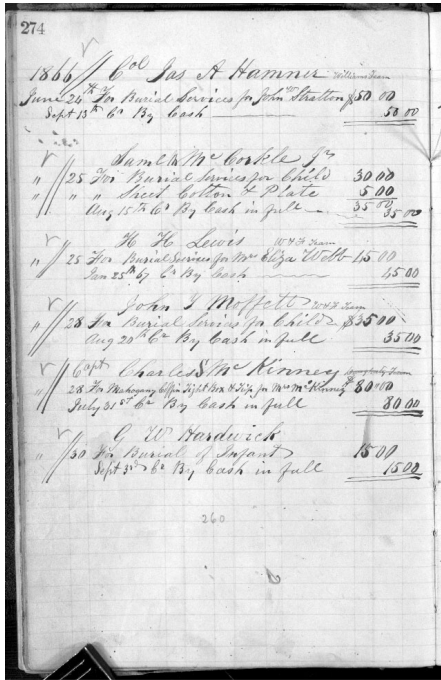 274
1866 Col Jas A Hamner Williams Team
June 24th For Burial Services for John Stratton $50 00
Sept 13th Cr By Cash 50 00
Saml McCorkle Jr
" 25 For Burial Services for Child 30 00
" " " Sheet Cotton & Plate 5 00
35 00
Aug 15th Cr By Cash in full 35 00
H H Lewis W & D Team
" 25 For Burial Services for Mrs Eliza Webb 45 00
Jan 25th 67 Cr By Cash 45 00
John Moffett Team
" 28 For Burial Services for Child $35 00
Aug 20th Cr By Cash in full 35 00
Capt Charles S McKinney Team
" 28 For Mahogany Coffin Tight Box & for Mrs McKinney 80 00
July 31st Cr By Cash in full 80 00
G W Hardwick
" 30 For Burial of Infant 15 00
Sept 3rd Cr By Cash in full 15 00
260